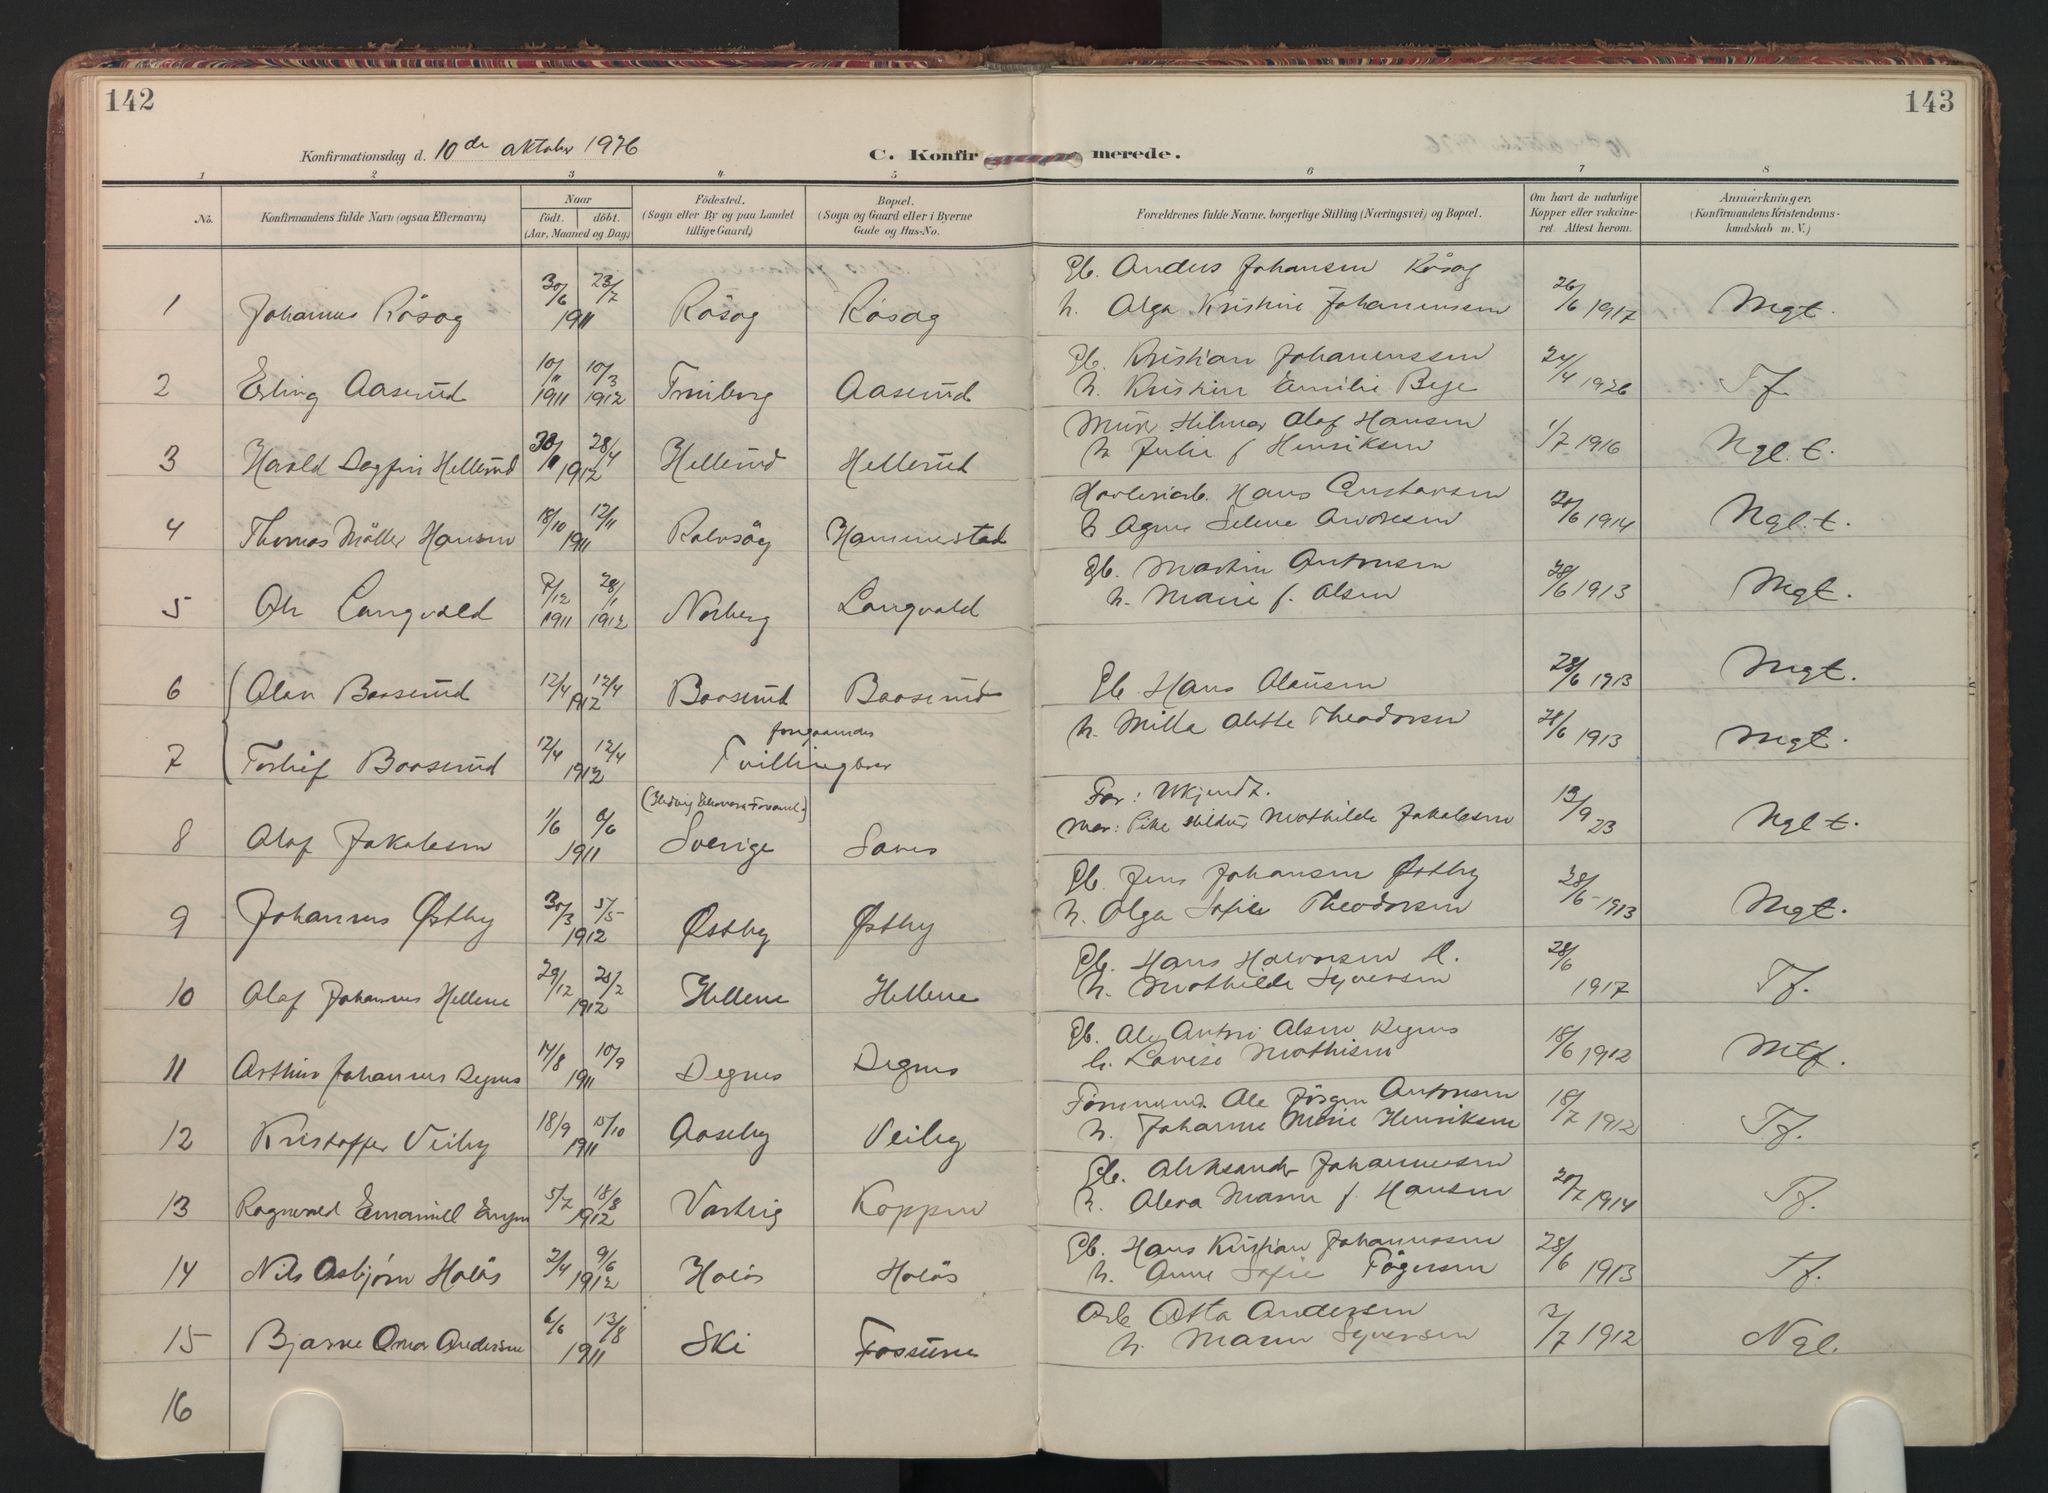 142
143
Konfirmationsdag d. 10de oktober 1926
C. Konfirmerede.
1 2 3 4 5 6 7 8
No. Konfirmandens fulde Navn (ogsaa Efternavn) Naar födt. döbt. (Aar, Maaned og Dag.) Födested. (Sogn eller By og paa Landet tillige Gaard.) Bopæl. (Sogn og Gaard eller i Byerne Gade og Hus-No. Forældrenes fulde Navne, borgerlige Stilling (Næringsvei) og Bopæl. Om havt de naturlige Kopper eller vakcineret. Attest herom. Anmærkninger. (Konfirmandens Kristendomskundskab m. V.)
1 Johannes Råsog 30/6 23/7 1911 Råsog Råsog
Gb. Anders Johansen Råsog
h. Olga Kristine Johannessen 26/6 1917 Mgt.
2 Erling Aaserud 10/11 1911 10/3 1912 Aaserud
Gb. Kristian Johannessen
h. Kristin Emilie Bye 24/4 1926 Tf.
3 Harald Dagfin Hellerud 30/1 28/4 1912 Hellerud Hellerud
Murer Hilmar Olaf Hansen
h. Julie f Henriksen 1/7 1916 Ngl. t.
4 Thomas Möller Hansen 18/10 12/11 1911 Rolvsöy Hammerstad
Hans Gustavsen
h Agnes Selene Andresen /6 1914 Ngl. t.
5 Ole Langvald 7/12 1911 28/1 1912 Norberg Langvald
Gb. Martin Antonsen
h. Marie f. Olsen 28/6 1913 Mgt.
6 Olav Baaserud 12/4 12/4 1912 Baaserud Baaserud
Gb Hans Olausen 28/6 1913 Mgt.
h. Milla Olette Theodorsen
7 Torleif Baaserud 12/4 12/4 1912 forgaaendes Tvillingbror 28/6 1913 Mgt.
8 Olaf Jakobsen 1/6 6/6 1911 Sverige Sanes
Far: Ukjendt.
Mor: Pike Mathilde Jakobsen 13/9 23 Ngl t.
9 Johannes Østby 30/3 5/5 1912 Østby Østby
Gb. Jens Johansen Østby
h. Olga Sofie Theodorsen 28/6 - 1913 Mgt.
10 Olaf Johannes Hellene 29/12 25/2 1912 Hellene Hellene
Gb. Hans Halvorsen H.
h. Mathilde Syversen 28/6 1917 Tf.
11 Arthur Johannes Degnes 14/8 10/9 1911 Degnes Degnes
Gb. Ole Anton Olsen Degnes
h. Lovise Mathisen 18/6 1912 Mtf.
12 Kristoffer Veiby 18/9 15/10 1911 Aaseby Veiby
Formand Ole Jörgen Antonsen
h. Johanne Marie Henriksen 18/7 1912 Tf.
13 Ragnvald Emanuell 5/7 18/8 1912 Koppen
Gb. Aleksander Johannessen
h. Maren f. Hansen 20/7 1914 Tf.
14 Nils Asbjørn Holös 2/4 9/6 1912 Holös Holös
Gb. Hans Kristian Johannessen
h. Anne Sofie 28/6 1913 Tf.
15 Bjarne Omar Andersen 6/6 13/8 1911 Ski Fossum
Arb Otto Andersen
h. Maren Syversen 3/7 1912 Ngl.
16